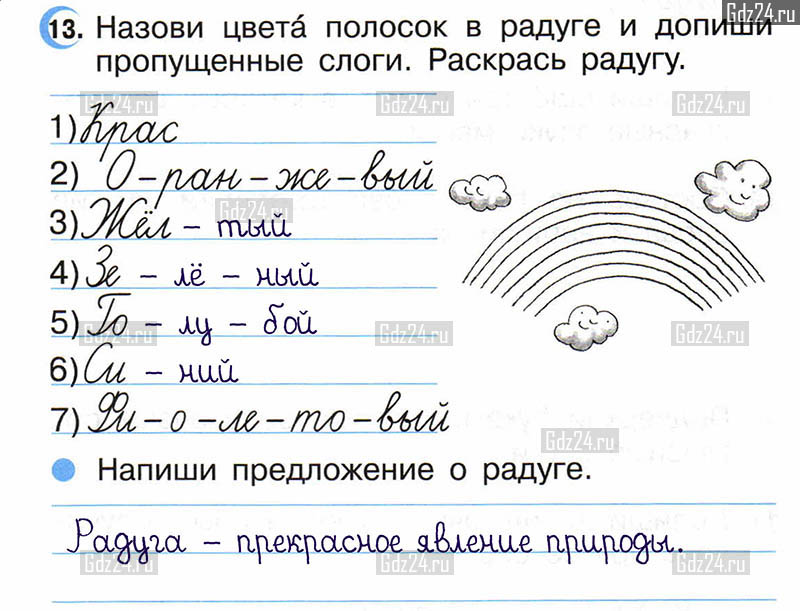 13. Назови цвета́ полосок в радуге и допиши
пропущенные слоги. Раскрась радугу.
1) Крас
2) О – ран – же – вый
3) Жёл – тый
4) Зе – лё – ный
5) Го – лу – бой
6) Си – ний
7) Фи – о – ле – то – вый
Напиши предложение о радуге.
Радуга – прекрасное явление природы.
Gdz24.ru
Gdz24.ru
Gdz24.ru
Gdz24.ru
Gdz24.ru
Gdz24.ru
Gdz24.ru
Gdz24.ru
Gdz24.ru
Gdz24.ru
Gdz24.ru
Gdz24.ru